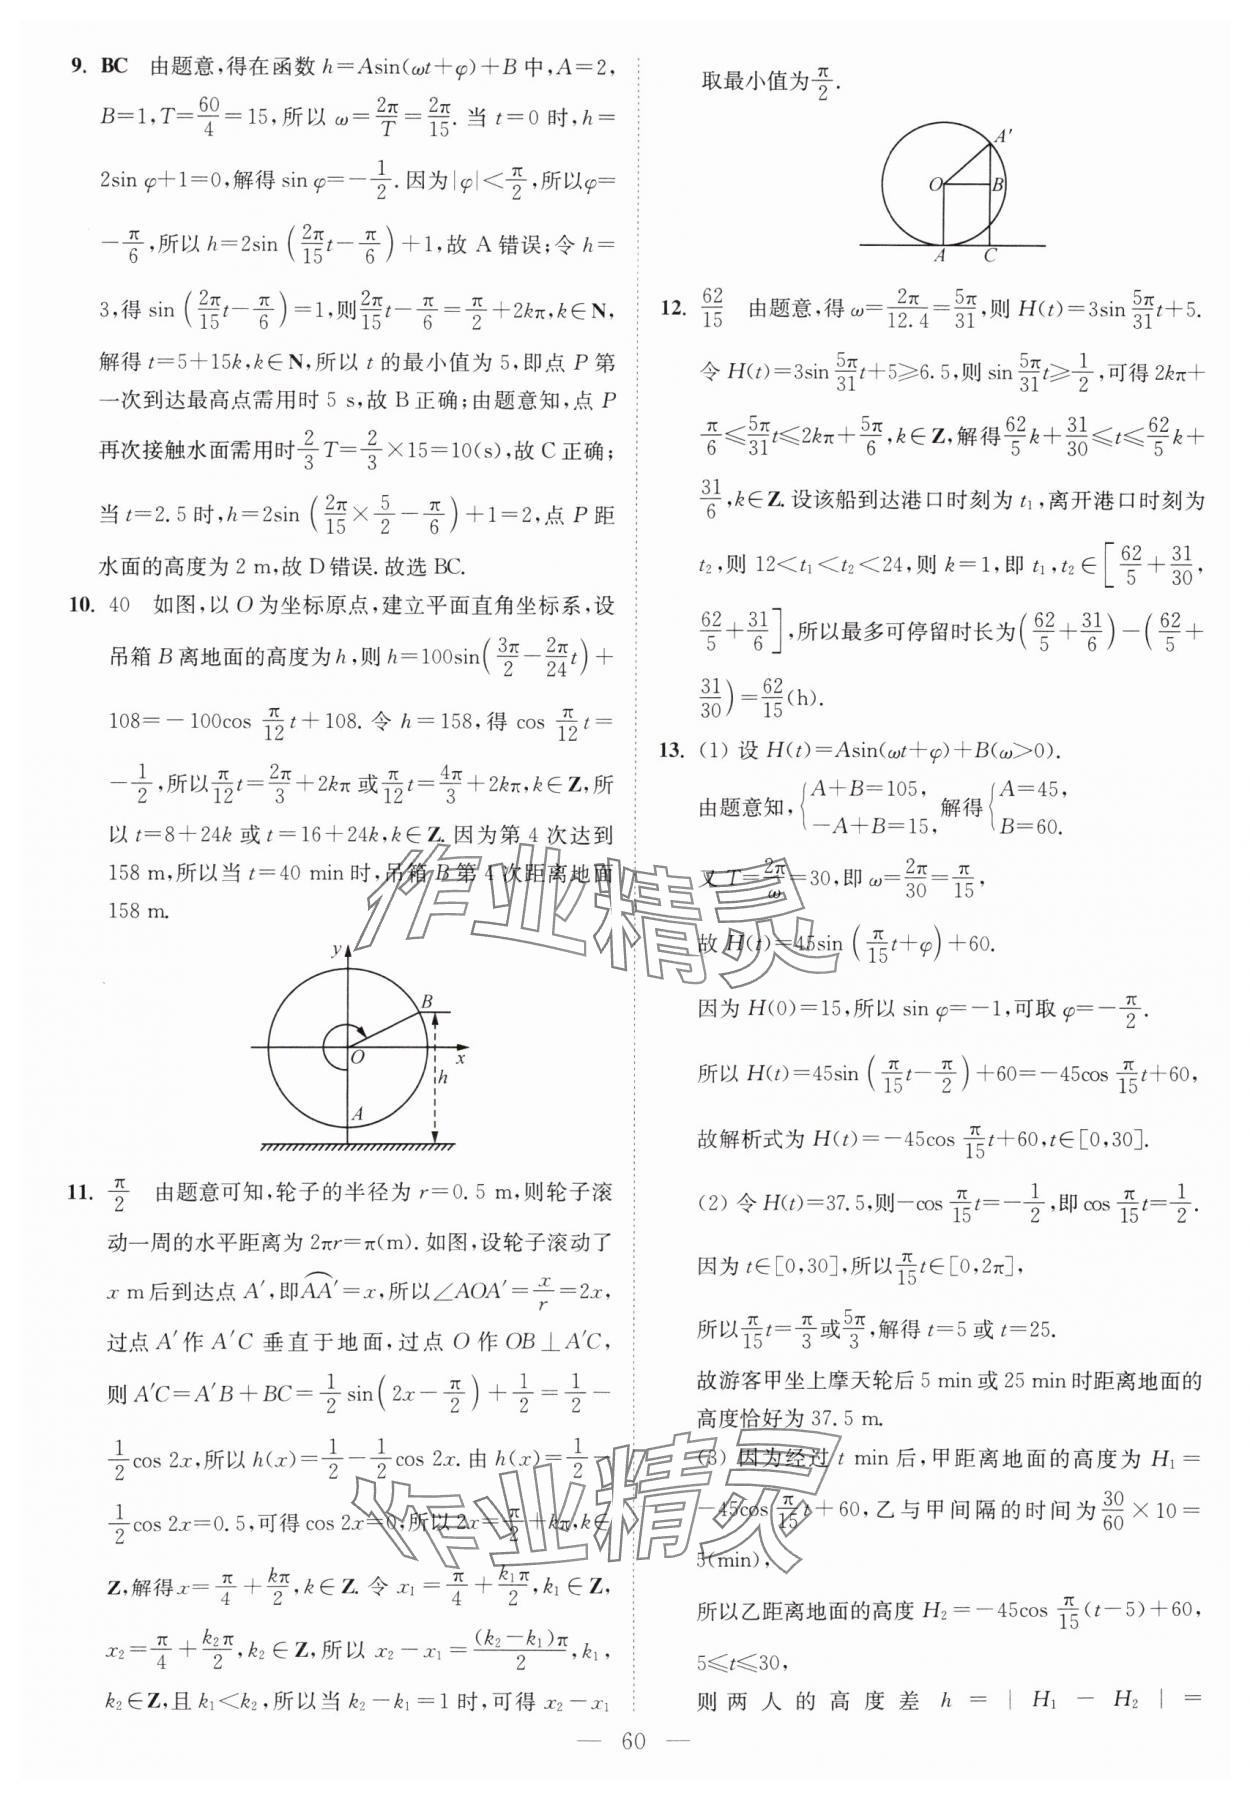 9. BC 由题意,得在函数 h=Asin(ωt+φ)+B 中,A=2,
B=1,T=60/4=15,所以 ω=2π/T=2π/15. 当 t=0 时,h=
2sin φ+1=0,解得 sin φ=-1/2.因为|φ|<π/2,所以φ=
-π/6,所以 h=2sin(2π/15t-π/6)+1,故 A 错误;令 h=
3,得 sin(2π/15t-π/6)=1,则2π/15t-π/6=π/2+2kπ,k∈N,
解得 t=5+15k,k∈N,所以 t 的最小值为 5,即点 P 第
一次到达最高点需用时 5 s,故 B 正确;由题意知,点 P
再次接触水面需用时2/3T=2/3×15=10(s),故 C 正确;
当 t=2.5 时,h=2sin(2π/15×5/2-π/6)+1=2,点 P 距
水面的高度为 2 m,故 D 错误.故选 BC.
10. 40 如图,以 O 为坐标原点,建立平面直角坐标系,设
吊箱 B 离地面的高度为 h,则 h=100sin(3π/2-2π/24t)+
108=-100cos π/12t+108. 令 h=158,得 cos π/12t=
-1/2,所以π/12t=2π/3+2kπ 或π/12t=4π/3+2kπ,k∈Z,所
以 t=8+24k 或 t=16+24k,k∈Z.因为第 4 次达到
158 m,所以当 t=40 min 时,吊箱 B 第 4 次距离地面
158 m.
y
B
O
x
h
A
11. π/2 由题意可知,轮子的半径为 r=0.5 m,则轮子滚
动一周的水平距离为 2πr=π(m). 如图,设轮子滚动了
x m后到达点 A′,即AA′=x,所以∠AOA′=x/r=2x,
过点 A′作 A′C 垂直于地面,过点 O 作 OB⊥A′C,
则 A′C=A′B+BC=1/2sin(2x-π/2)+1/2=1/2-
1/2cos 2x,所以 h(x)=1/2-1/2cos 2x. 由 h(x)=1/2-
1/2cos 2x=0.5,可得 cos 2x=0,所以 2x=π/2+kπ,k∈
Z,解得x=π/4+kπ/2,k∈Z. 令 x₁=π/4+k₁π/2,k₁∈Z,
x₂=π/4+k₂π/2,k₂∈Z,所以 x₂-x₁=(k₂-k₁)π/2,k₁,
k₂∈Z,且 k₁<k₂,所以当 k₂-k₁=1时,可得 x₂-x₁
取最小值为π/2.
A′
O
B
A
C
12. 62/15 由题意,得 ω=2π/12.4=5π/31,则 H(t)=3sin5π/31t+5.
令 H(t)=3sin5π/31t+5⩾6.5,则 sin5π/31t⩾1/2,可得 2kπ+
π/6⩽5π/31t⩽2kπ+5π/6,k∈Z,解得62/5k+31/30⩽t⩽62/5k+
31/6,k∈Z.设该船到达港口时刻为 t₁,离开港口时刻为
t₂,则 12<t₁<t₂<24,则 k=1,即 t₁,t₂∈[62/5+31/30,
62/5+31/6],所以最多可停留时长为(62/5+31/6)-(62/5+
31/30)=62/15(h).
13. (1) 设 H(t)=Asin(ωt+φ)+B(ω>0).
由题意知,{A+B=105, -A+B=15, 解得{A=45, B=60.
又 T=2π/ω=30,即 ω=2π/30=π/15,
故 H(t)=45sin(π/15t+φ)+60.
因为 H(0)=15,所以 sin φ=-1,可取 φ=-π/2.
所以 H(t)=45sin(π/15t-π/2)+60=-45cos π/15t+60,
故解析式为 H(t)=-45cos π/15t+60,t∈[0,30].
(2) 令 H(t)=37.5,则-cos π/15t=-1/2,即 cos π/15t=1/2.
因为 t∈[0,30],所以π/15t∈[0,2π],
所以π/15t=π/3或5π/3,解得 t=5 或 t=25.
故游客甲坐上摩天轮后 5 min 或 25 min 时距离地面的
高度恰好为 37.5 m.
(3) 因为经过 t min 后,甲距离地面的高度为 H₁=
-45cos π/15t+60,乙与甲间隔的时间为30/60×10=
5(min),
所以乙距离地面的高度 H₂=-45cos π/15(t-5)+60,
5⩽t⩽30,
则 两 人 的 高 度 差 h = | H₁ - H₂ | =
— 60 —
作业精灵
作业精灵